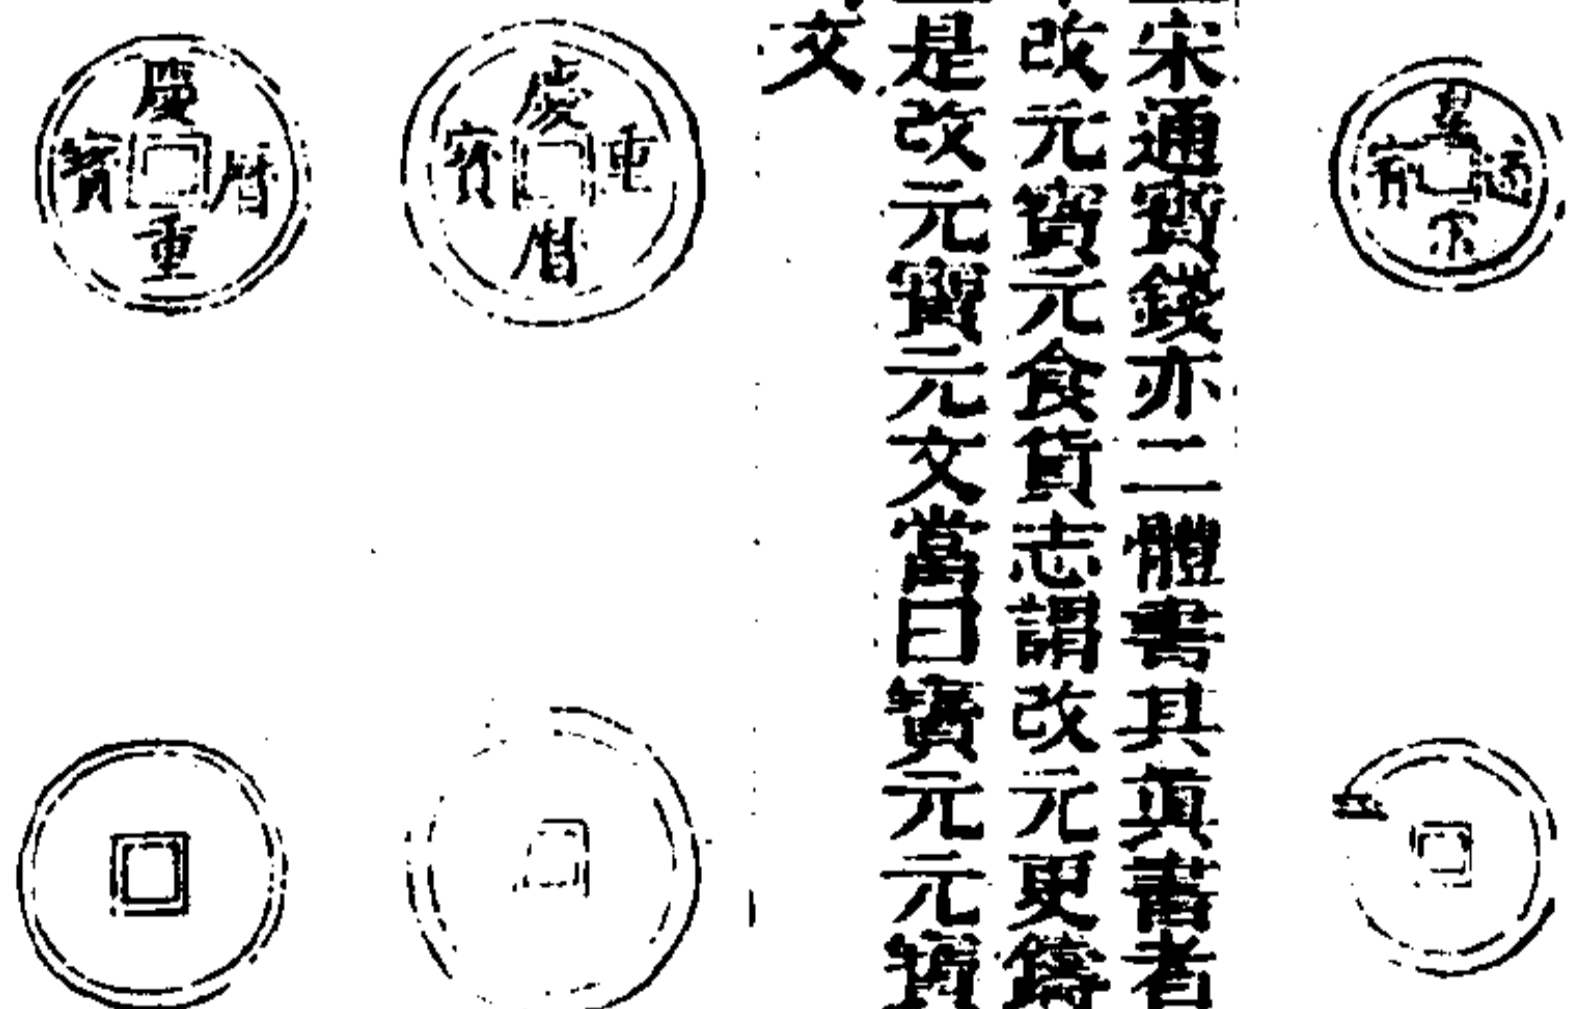 皇宋通寶
宋通寶錢亦二體書其真書者
改元寶元食貨志謂改元更鑄
是改元寶元文當曰寶元元寶
文
慶曆重寶
慶曆重寶